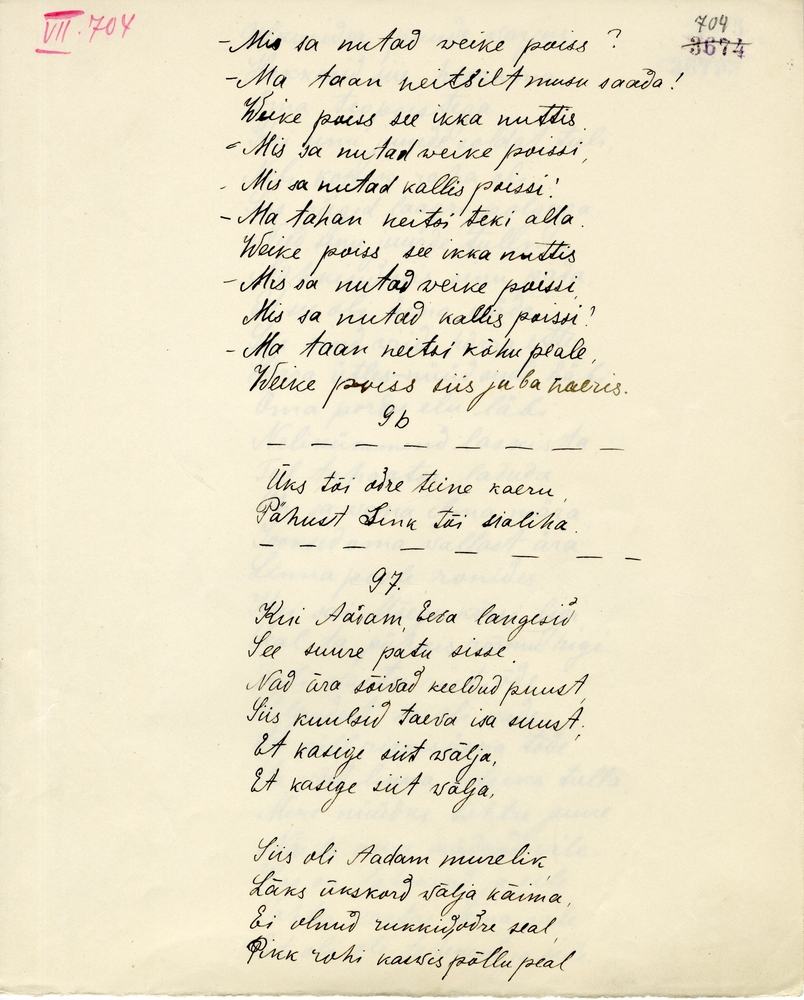 VII. 704
704
3674
- Mis sa nutad weike poiss ?
- Ma taan neitsilt musu saada!
Weike poiss see ikka nuttis.
- Mis sa nutad weike poissi,
- Mis sa nutad kallis poissi!
- Ma tahan neitsi teki alla.
Weike poiss see ikka nuttis
- Mis sa nutad weike poissi,
Mis sa nutad kallis poissi!
- Ma taan neitsi kõhu peale,
Weike poiss siis juba naeris.
96
Üks tõi odre teine kaeru,
Pähust Link tõi sialiha.
97.
Kui Aadam, Eeva langesid
See suure patu sisse.
Nad ära sõivad keeldud puust,
Siis kuulsid taeva isa suust,
Et kasige siit wälja,
Et kasige siit wälja,
Siis oli Aadam murelik,
Läks ükskord wälja käima,
Ei olnud rukkid, odre seal,
Pikk rohi kaswis põllu peal